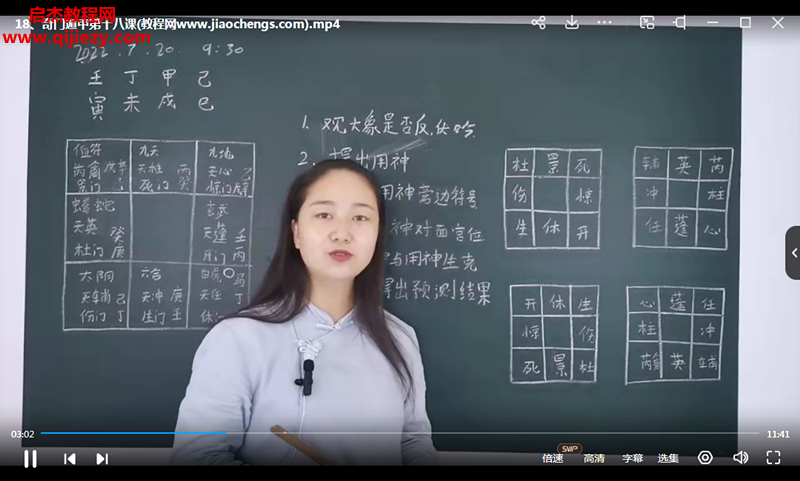 18、奇门遁甲第十八课(教程网www.jiaochengs.com).mp4
启杰教程网
www.qijiezy.com
2022.7.20. 9:30
壬 丁 甲 己
寅 未 戌 巳
1. 观大象是否反、伏吟
2. 提出用神
用神旁边符号
神对面宫位
与用神生克
得出预测结果
值符 九天 九地
芮禽 天柱 丙 天心
景门 死门 癸 惊门
螣蛇 玄武
天英 癸 天蓬 壬
杜门 庚 开门 丙
太阴 六合 白虎 马
天辅 己 天冲 庚 天任 丁
伤门 丁 生门 壬 休
杜 景 死
伤 惊
生 休 开
辅 英 芮
冲 柱
任 蓬 心
开 休 生
惊 伤
死 景 杜
心 蓬 任
柱 冲
芮禽 英 辅
03:02
11:41
倍速 SVIP 高清 字幕 选集